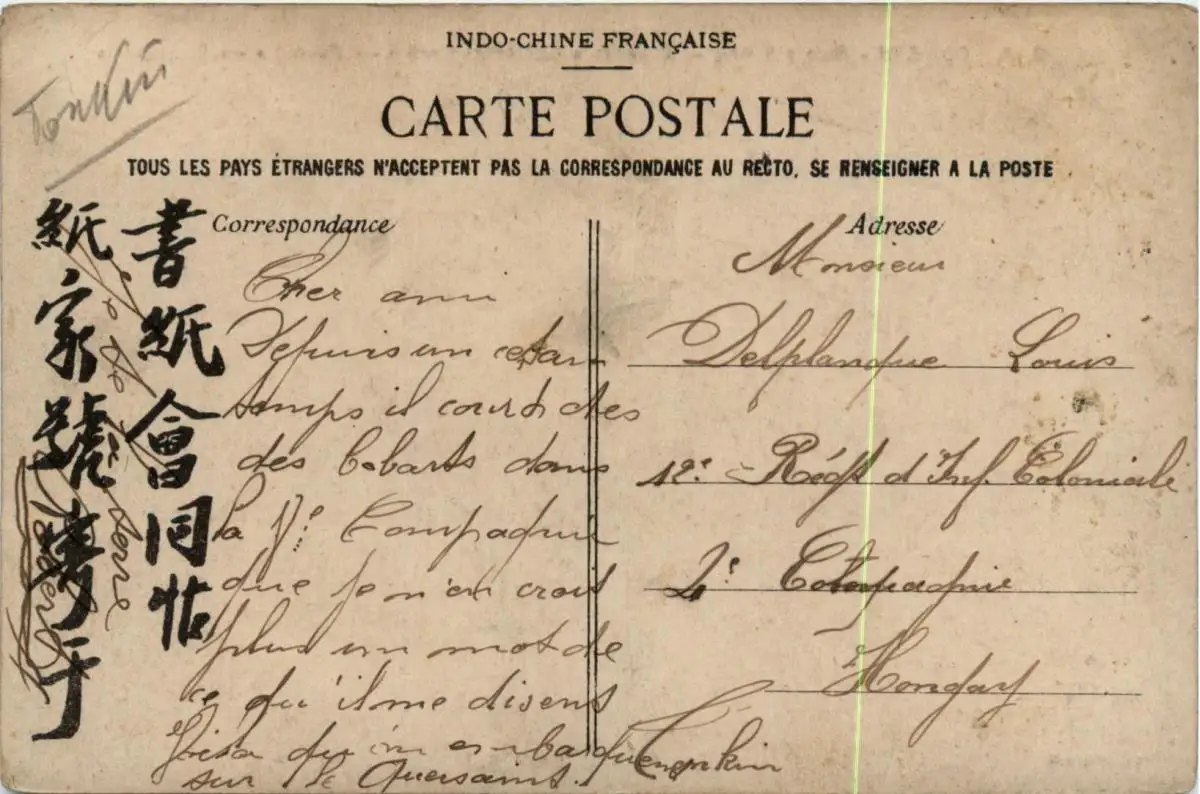 Tonkin
INDO-CHINE FRANÇAISE
CARTE POSTALE
TOUS LES PAYS ÉTRANGERS N'ACCEPTENT PAS LA CORRESPONDANCE AU RECTO, SE RENSEIGNER A LA POSTE
Correspondance
Cher ami
Depuis un certain
temps il court des
des bobards dans
la
Compagnie
que je n'en crois
plus un mot de
ce qu'il me disent
qu'on embarque
sur le Quersaint.
Adresse
Monsieur
Delplanque Louis
12e Régt d'Inf. Coloniale
2e Compagnie
Hongay
Tonkin
書紙會同帖
紙家號寿于
Robert